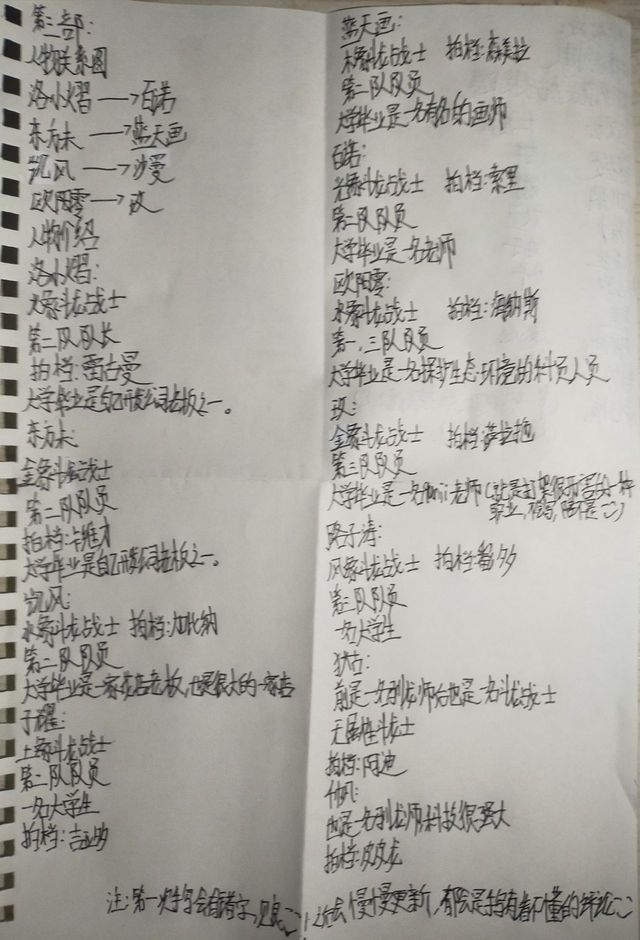 第三部:
人物联系图
洛小熠——>百诺
东方末——>蓝天画
凯风——>沙曼
欧阳零——>玫
人物介绍
洛小熠:
火象斗龙战士
第二队队长
拍档:雷古曼
大学毕业是自己开发公司老板之一。
东方末:
金象斗龙战士
第二队队员
拍档:卡维力
大学毕业是自己开发公司老板之一。
凯风:
水象斗龙战士 拍档:加比纳
第二队队员
大学毕业是一家花店老板,也是很大的一家店
子耀:
土象斗龙战士
第二队队员
一名大学生
拍档:
蓝天画:
木象斗龙战士 拍档:森美拉
第二队队员
大学毕业是一名有名的画师
百诺:
光象斗龙战士 拍档:索里
第二队队员
大学毕业是一名老师
欧阳零:
水象斗龙战士 拍档:海纳斯
第一,三队队员
大学毕业是一名探护生态环境的科员人员
玫:
金象斗龙战士 拍档:萨拉拖
第三队队员
大学毕业是一名老师
路子涛:
风象斗龙战士 拍档:多
第三队队员
一名大学生
狄古:
前是一名驯龙师后也是一名斗龙战士
无属性斗龙士
拍档:阿迪
什凡:
也是一名驯龙师,科技很强大
拍档:皮皮龙
注:第一次手写会有错字,见良 慢慢更新,